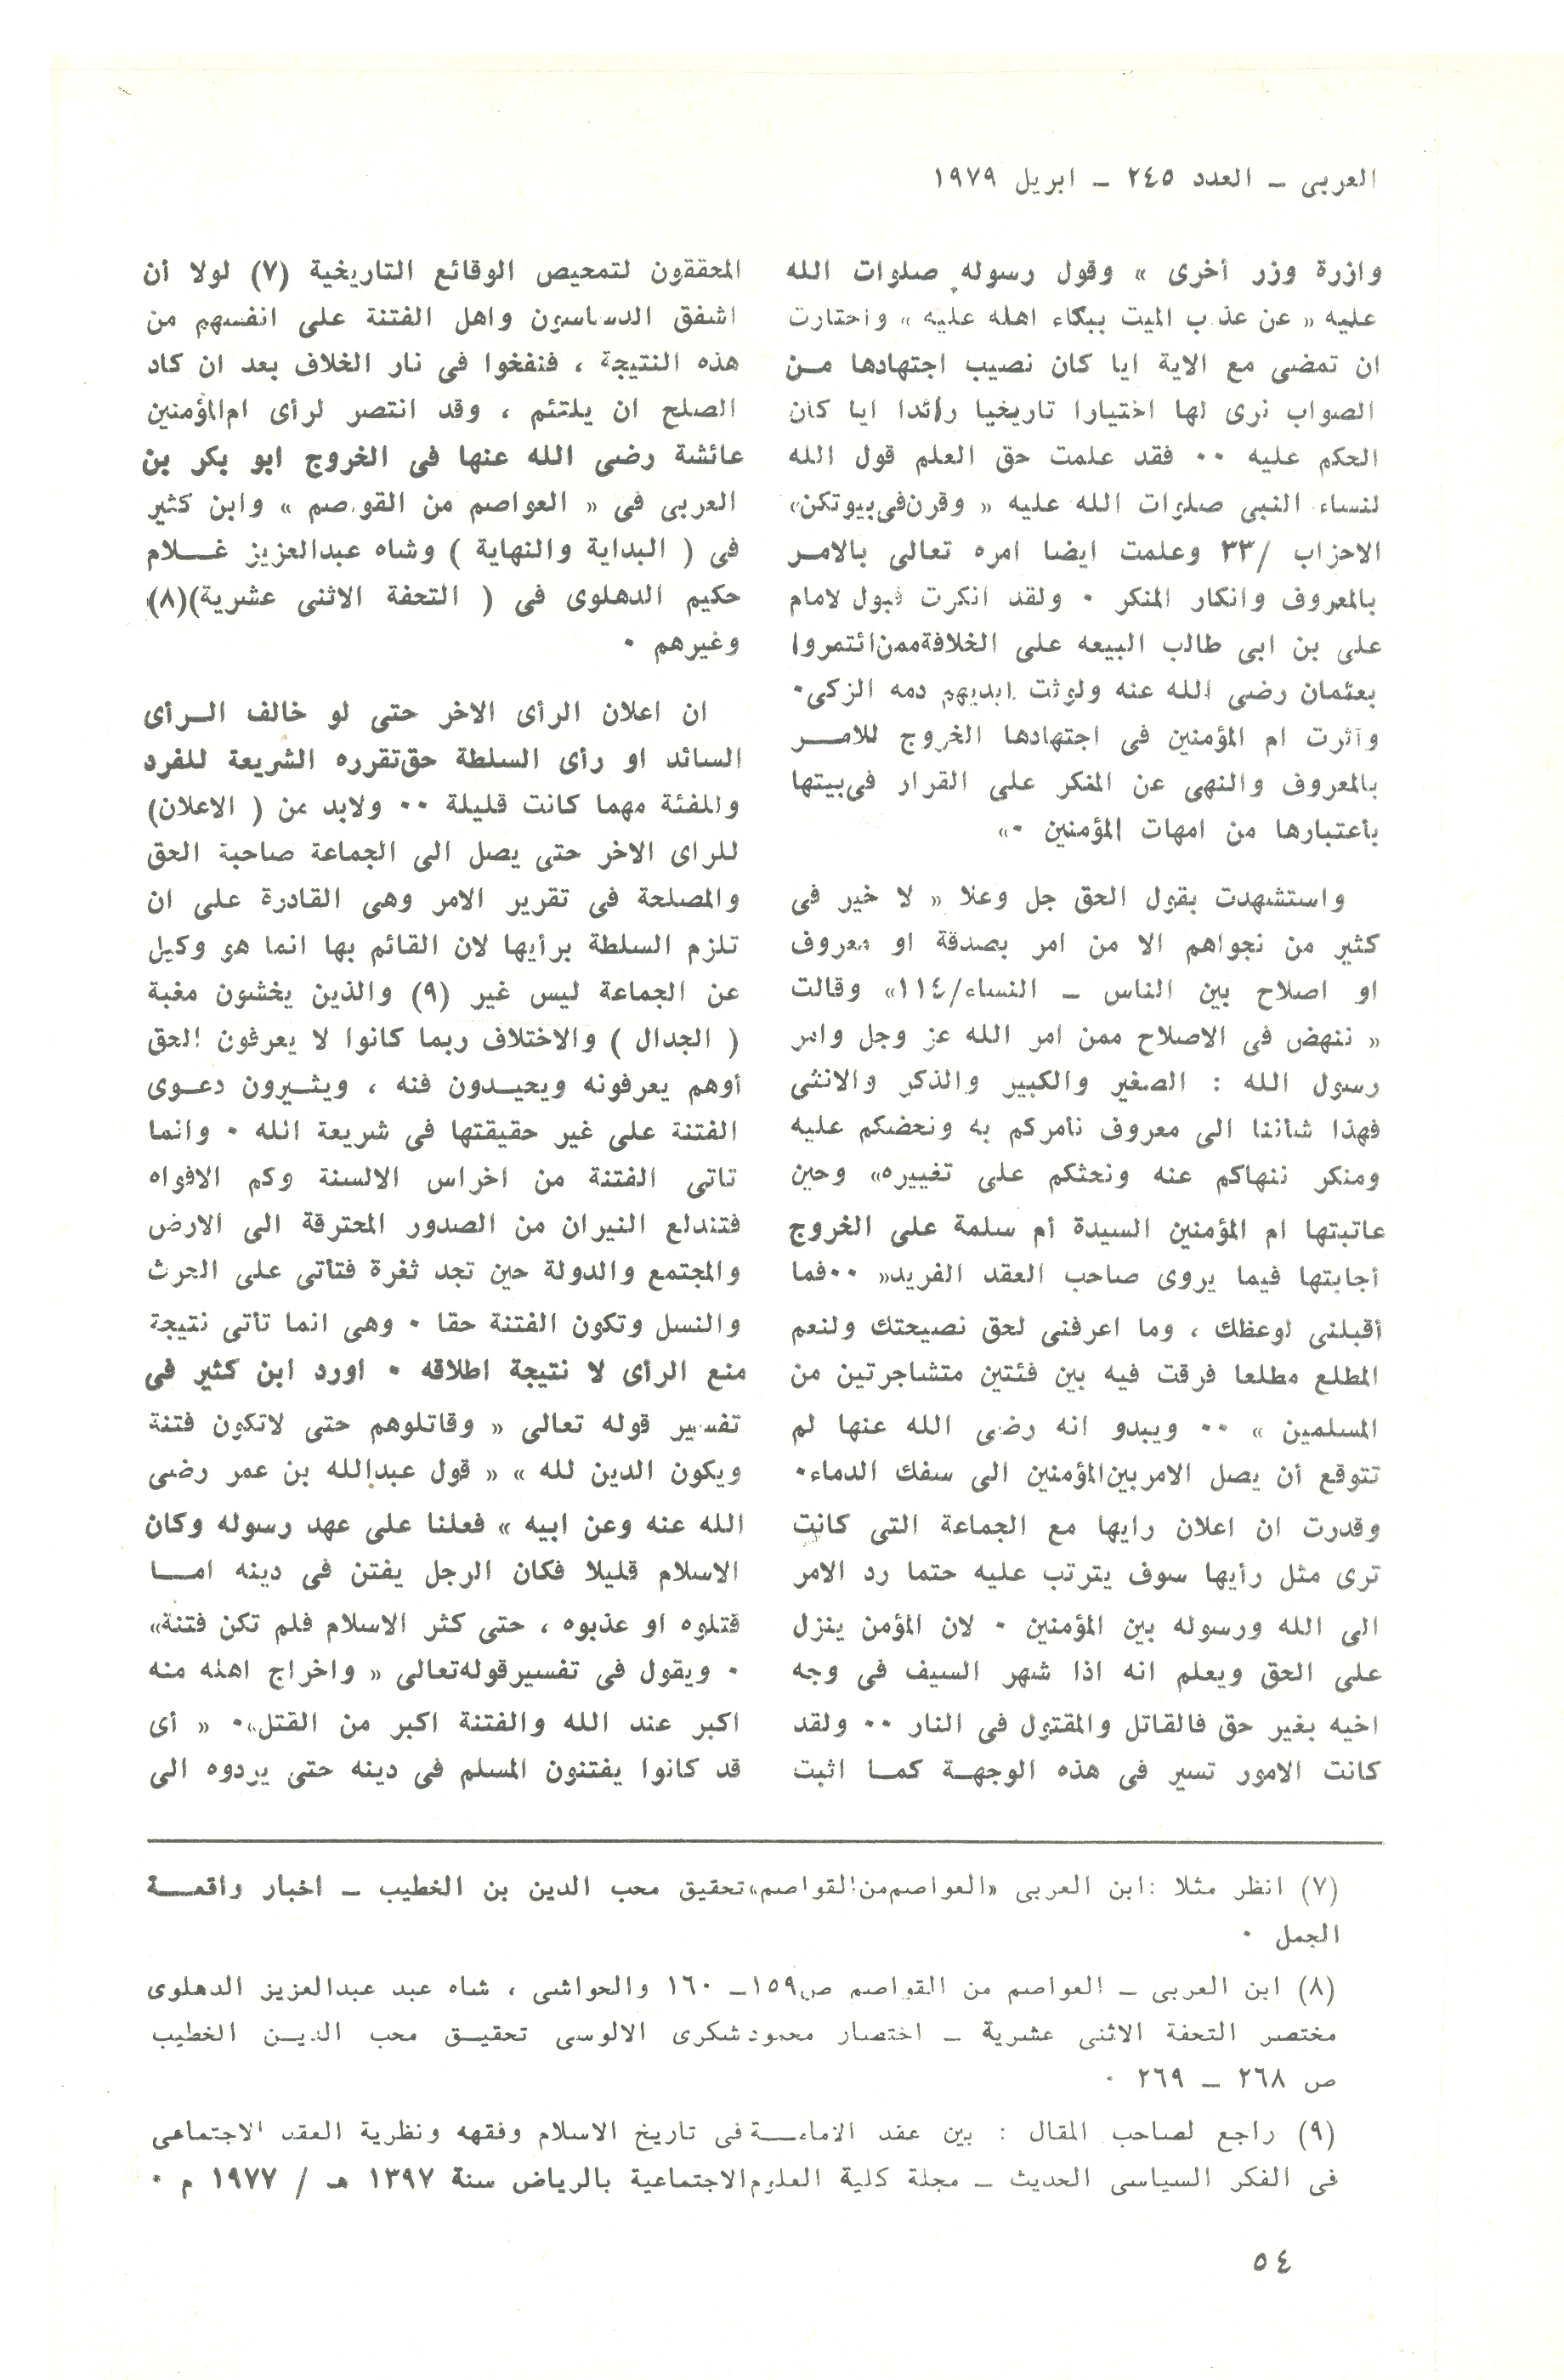 العربى – العدد ٢٤٥ – ابريل ١٩٧٩
وازرة وزر أخرى » وقول رسوله صلوات الله
عليه « عن عذب الميت ببكاء اهله عليه » واختارت
ان تمضى مع الاية ايا كان نصيب اجتهادها مـن
الصواب نرى لها اختيارا تاريخيا رائدا ايا كان
الحكم عليه ٠٠ فقد علمت حق العلم قول الله
لنساء النبى صلوات الله عليه « وقرن فى بيوتكن»
الاحزاب /٣٣ وعلمت ايضا امره تعالى بالامـر
بالمعروف وانكار المنكر ٠ ولقد انكرت قبول لامام
على بن ابى طالب البيعه على الخلافة ممن ائتمروا
بعثمان رضى الله عنه ولوثت ايديهم دمه الزكى٠
وآثرت ام المؤمنين فى اجتهادها الخروج للامـر
بالمعروف والنهى عن المنكر على القرار فى بيتها
باعتبارها من امهات المؤمنين ٠»
واستشهدت بقول الحق جل وعلا « لا خير فى
كثير من نجواهم الا من امر بصدقة او معروف
او اصلاح بين الناس – النساء/١١٤» وقالت
« ننهض فى الاصلاح ممن امر الله عز وجل وامر
رسول الله : الصغير والكبير والذكر والانثى
فهذا شأننا الى معروف نأمركم به ونحضكم عليه
ومنكر ننهاكم عنه ونحثكم على تغييره» وحين
عاتبتها ام المؤمنين السيدة أم سلمة على الخروج
أجابتها فيما يروى صاحب العقد الفريد« ٠٠فما
أقبلنى لوعظك ، وما اعرفنى لحق نصيحتك ولنعم
المطلع مطلعا فرقت فيه بين فئتين متشاجرتين من
المسلمين » ٠٠ ويبدو انه رضى الله عنها لم
تتوقع أن يصل الامر بين المؤمنين الى سفك الدماء٠
وقدرت ان اعلان رايها مع الجماعة التى كانت
ترى مثل رأيها سوف يترتب عليه حتما رد الامر
الى الله ورسوله بين المؤمنين ٠ لان المؤمن ينزل
على الحق ويعلم انه اذا شهر السيف فى وجه
اخيه بغير حق فالقاتل والمقتول فى النار ٠٠ ولقد
كانت الامور تسير فى هذه الوجهـة كمـا اثبت
المحققون لتمحيص الوقائع التاريخية (٧) لولا أن
اشفق الدساسون واهل الفتنة على انفسهم من
هذه النتيجة ، فنفخوا فى نار الخلاف بعد ان كاد
الصلح ان يلتئم ، وقد انتصر لرأى ام المؤمنين
عائشة رضى الله عنها فى الخروج ابو بكر بن
العربى فى « العواصم من القوصم » وابن كثير
فى ( البداية والنهاية ) وشاه عبدالعزيز غـلام
حكيم الدهلوى فى ( التحفة الاثنى عشرية)(٨)
وغيرهم ٠
ان اعلان الرأى الاخر حتى لو خالف الـرأى
السائد او رأى السلطة حق تقرره الشريعة للفرد
وللفئة مهما كانت قليلة ٠٠ ولابد من ( الاعلان)
للراى الاخر حتى يصل الى الجماعة صاحبة الحق
والمصلحة فى تقرير الامر وهى القادرة على ان
تلزم السلطة برأيها لان القائم بها انما هو وكيل
عن الجماعة ليس غير (٩) والذين يخشون مغبة
( الجدال ) والاختلاف ربما كانوا لا يعرفون الحق
أوهم يعرفونه ويحيـدون فنه ، ويثـيرون دعـوى
الفتنة على غير حقيقتها فى شريعة الله ٠ وانما
تاتى الفتنة من اخراس الالسنة وكم الافواه
فتندلع النيران من الصدور المحترقة الى الارض
والمجتمع والدولة حين تجد ثغرة فتأتى على الحرث
والنسل وتكون الفتنة حقا ٠ وهى انما تأتى نتيجة
منع الرأى لا نتيجة اطلاقه ٠ اورد ابن كثير فى
تفسير قوله تعالى « وقاتلوهم حتى لاتكون فتنة
ويكون الدين لله » « قول عبدالله بن عمر رضى
الله عنه وعن ابيه » فعلنا على عهد رسوله وكان
الاسلام قليلا فكان الرجل يفتن فى دينه امـا
قتلوه او عذبوه ، حتى كثر الاسلام فلم تكن فتنة»
٠ ويقول فى تفسير قوله تعالى « واخراج اهله منه
اكبر عند الله والفتنة اكبر من القتل»٠ « أى
قد كانوا يفتنون المسلم فى دينه حتى يردوه الى
(٧) انظر مثلا :ابن العربى «العواصم من القواصم» تحقيق محب الدين بن الخطيب – اخبار واقعـة
الجمل ٠
(٨) ابن العربى – العواصم من القواصم ص١٥٩– ١٦٠ والحواشى ، شاه عبد عبدالعزيز الدهلوى
مختصر التحفة الاثنى عشرية – اختصار محمود شكرى الالوسى تحقيـق محب الديـن الخطيب
ص ٢٦٨ – ٢٦٩ ٠
(٩) راجع لصاحب المقال : بين عقد الامامـة فى تاريخ الاسلام وفقهه ونظرية العقد الاجتماعى
فى الفكر السياسى الحديث – مجلة كلية العلوم الاجتماعية بالرياض سنة ١٣٩٧ هـ / ١٩٧٧ م ٠
٥٤